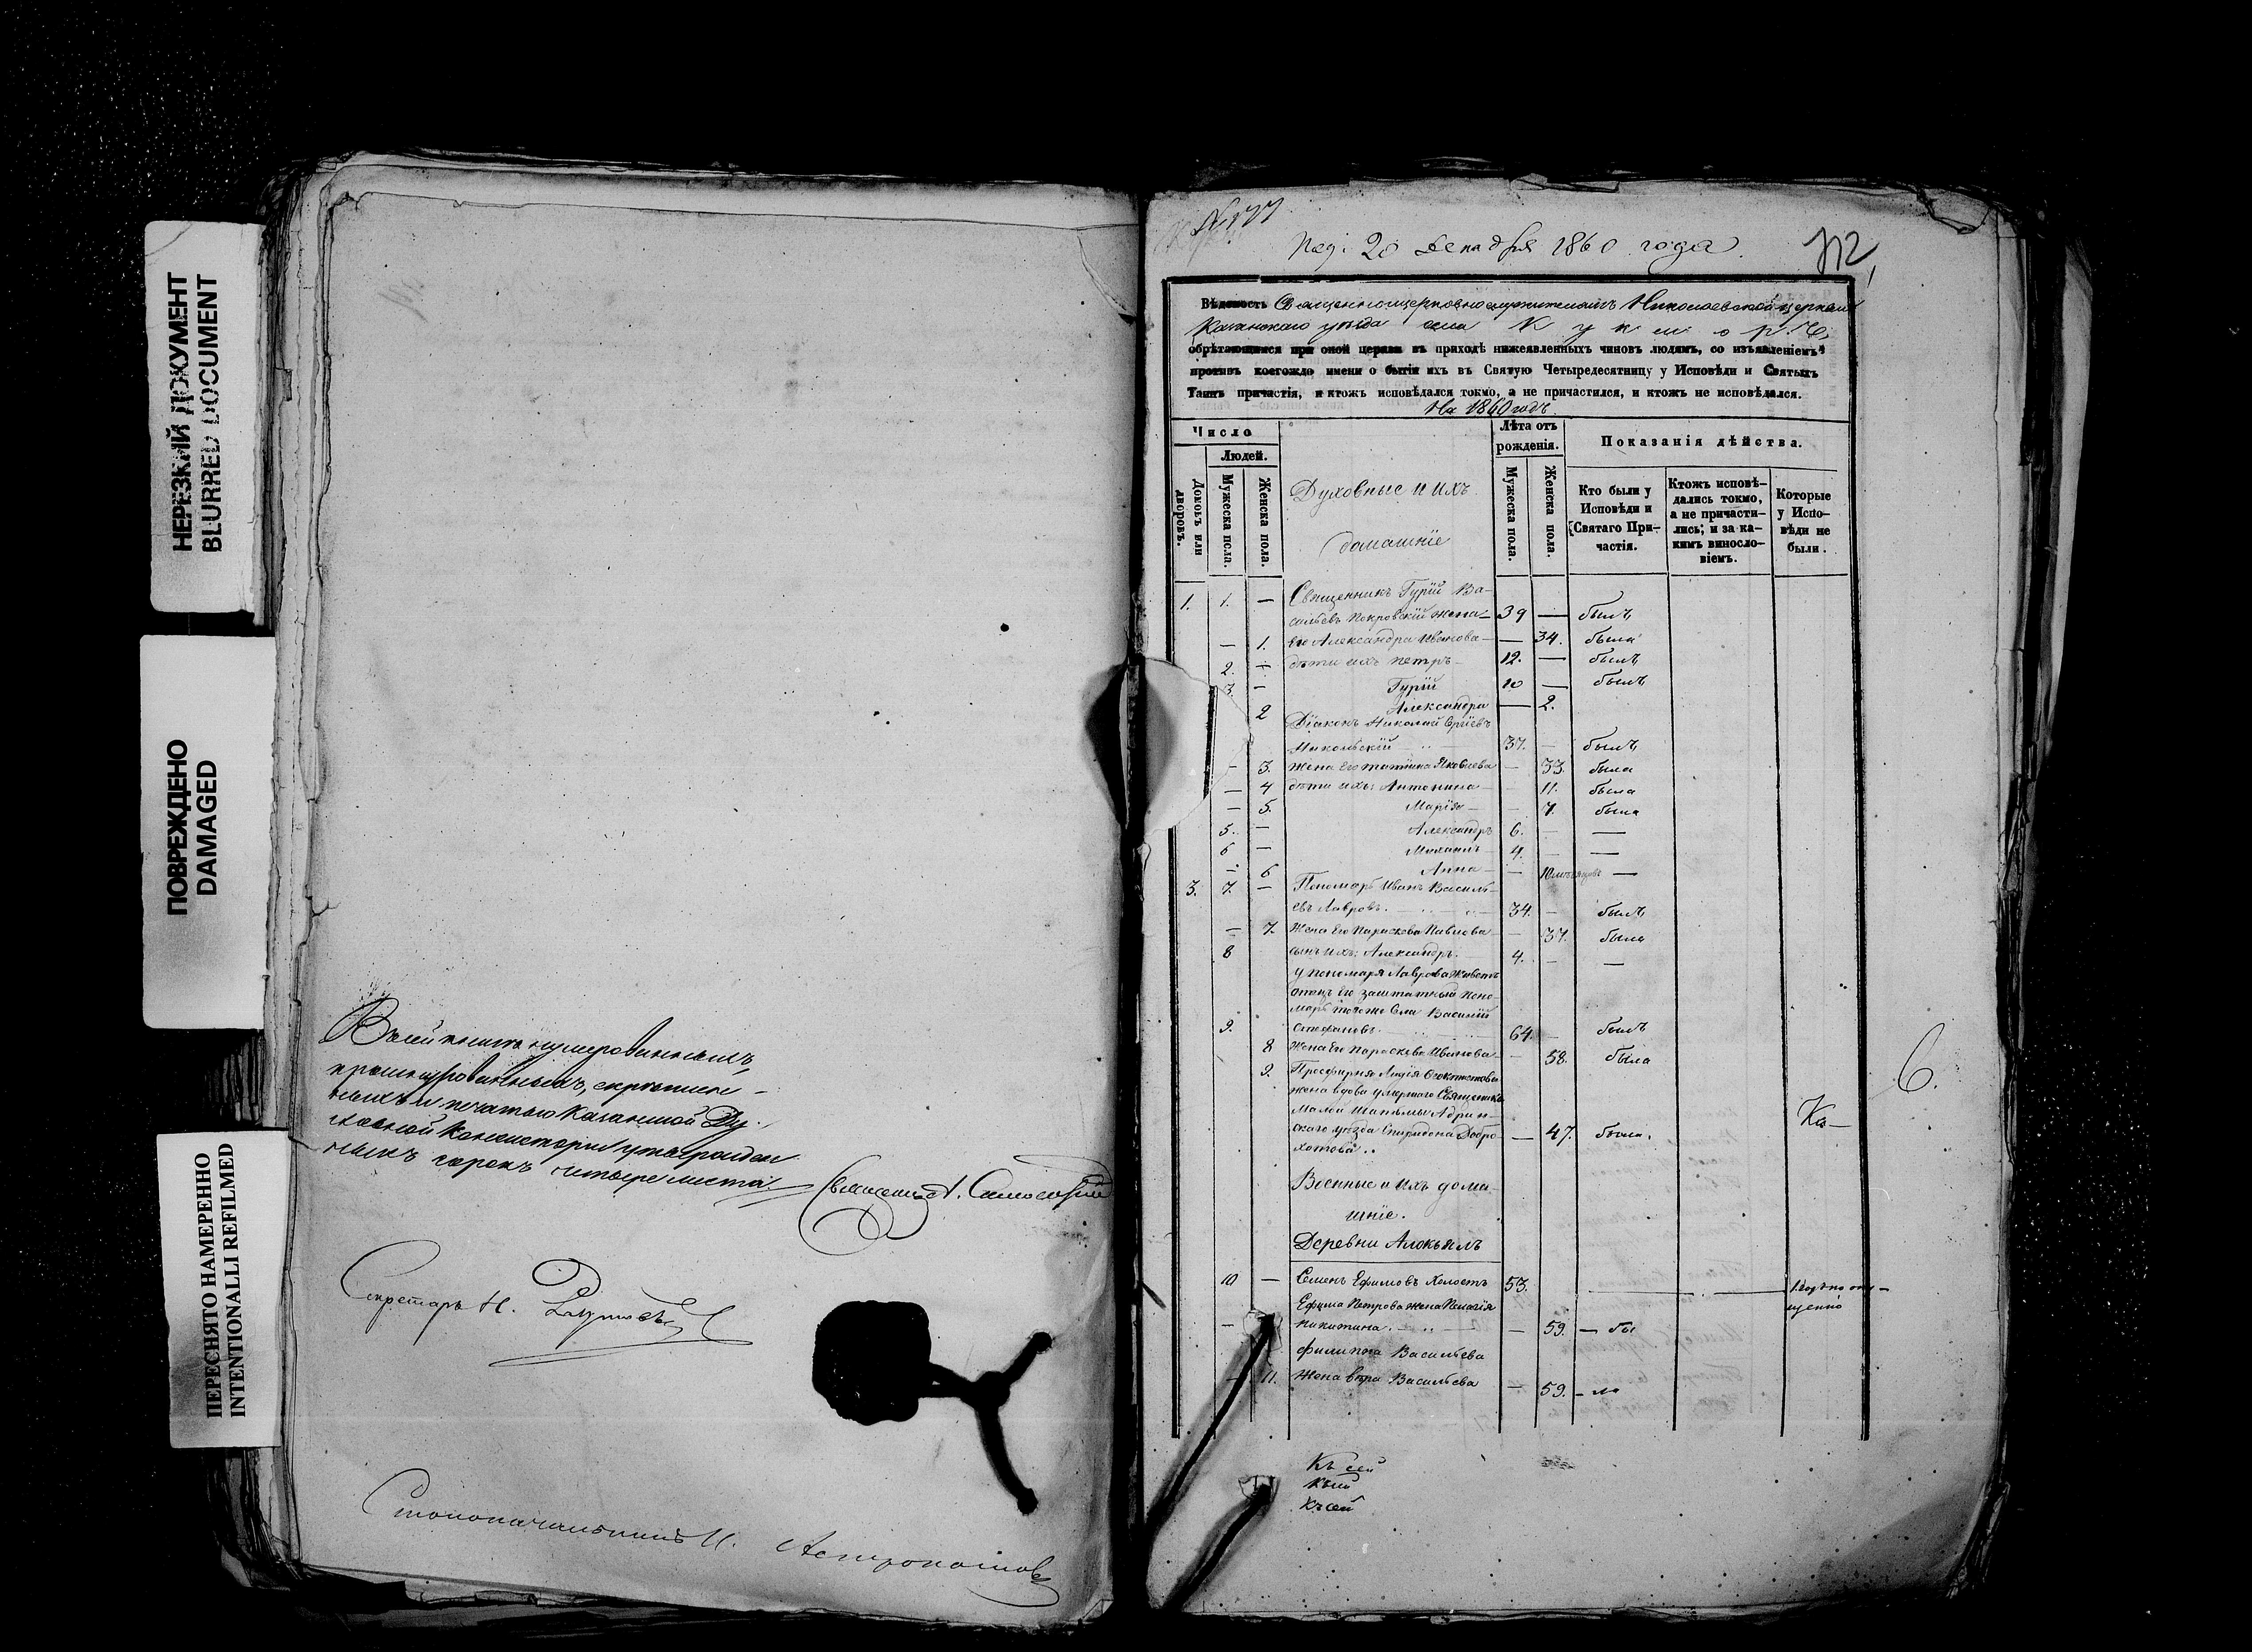 НЕРЕЗКИЙ ДОКУМЕНТ
BLURRED DOCUMENT
ПОВРЕЖДЕНО
DAMAGED
ПЕРЕСНЯТО НАМЕРЕННО
INTENTIONALLI REFILMED
В сей книге нумерованныхъ,
прошнурованныхъ, скреплен-
ныхъ и печатью Казанской Ду-
ховной Консисторіи утвержден
ныхъ сорокъ четыре листа.
Секретарь Н.
Столоначальникъ
20 Декабря 1860 года.
Вѣдомость Священноцерковнослужителямъ Николаевской церкви
Казанскаго уѣзда села К у к м о р ъ,
обрѣтающимся при оной церкви въ приходѣ нижеявленныхъ чиновъ людямъ, со изъявленіемъ
противъ коегождо имени о бытіи ихъ въ Святую Четыредесятницу у Исповѣди и Святыхъ
Таинъ причастія, и ктожъ исповѣдался токмо, а не причастился, и ктожъ не исповѣдался.
На 1860 годъ.
Число
Людей.
Домовъ или дворовъ.
Мужеска пола.
Женска пола.
Духовные и ихъ
домашніе
Лѣта отъ рожденія.
Мужеска пола.
Женска пола.
Показанія дѣйства.
Кто были у Исповѣди и Святаго Причастія.
Ктожъ исповѣ-
дались токмо,
а не причасти-
лись; и за ка-
кимъ виносло-
віемъ.
Которые
у Испо-
вѣди не
были.
1. 1. — Священникъ Гурій Ва-
сильевъ Покровскій жена 39 — былъ
— 1. Его Александра Иванова — 34. была
2. — дѣти ихъ Петръ 12. — былъ
3. — Гурій 10 — былъ
2 Александра — 2.
Діаконъ Николай Сергіевъ
Никольскій 37. — былъ
— 3. Жена его Татіана Яковлева — 33. была
— 4 дѣти ихъ: Антонина 11. была
— 5. Марія — 7. была
5. — Александръ 6. — —
6 — Михаилъ 4. — —
— 6 Анна — —
3. 7. — Пономарь Иванъ Василь
евъ Лавровъ. 34. — былъ
— 7. Жена его Параскева Павлова — 37. была
8 сынъ ихъ: Александръ. 4. — —
у пономаря Лаврова живетъ
отецъ его заштатный поно-
марь тогоже села Василій
9. Стефановъ. 64. — былъ
8 Жена его Параскева Иванова — 58. была
9. Просфирня Лидія Феоктистова
жена вдова умершаго Священника
Малой Шатьмы Ядрин-
скаго уѣзда Спиридона Добро- — 47. была.
хотова..
Ка—
6.
Военные и ихъ дома
шніе.
Деревни
10 — Семенъ Ефимовъ Холостъ 53.
Ефима Петрова жена Пелагія
— Никитина. — 59. — бы
Филипа Васильева
— 11. Жена вѣра Васильева — 59. — ла
Къ сей
Къ сей
Къ сей